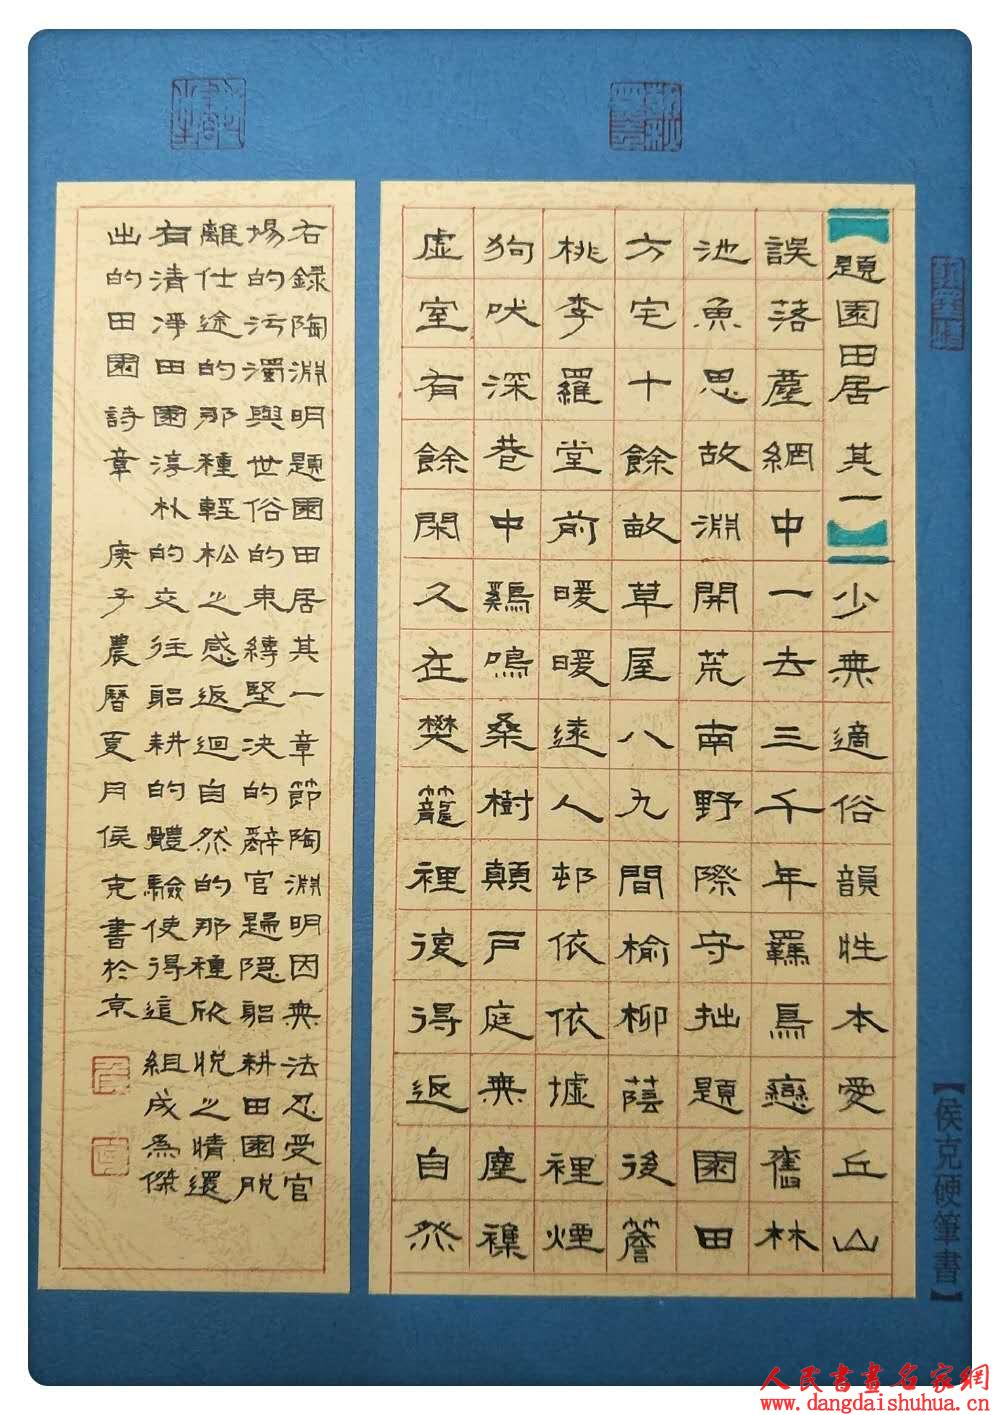 【題園田居 其一】少無適俗韻性本愛丘山
誤落塵網中一去三千年羈鳥戀舊林
池魚思故淵開荒南野際守拙題園田
方宅十餘畝草屋八九間榆柳蔭後簷
桃李羅堂前暖暖遠人邨依依墟裡煙
狗吠深巷中鷄鳴桑樹顛戶庭無塵襍
虛室有餘閑久在樊籠裡復得返自然
右録陶淵明題園田居其一章節陶淵明因無法忍受官
場的污濁與世俗的束縛堅決的辭官歸隱躬耕田園脫
離仕途的那種輕松之感返迴自然的那種欣悅之情還
有清淨田園淳朴的交往躬耕的體驗使得這組成為傑
出的田園詩章 庚子農曆夏月侯克書於京
【侯克硬筆書】
人民書畫名家網
www.dangdaishuhua.cn